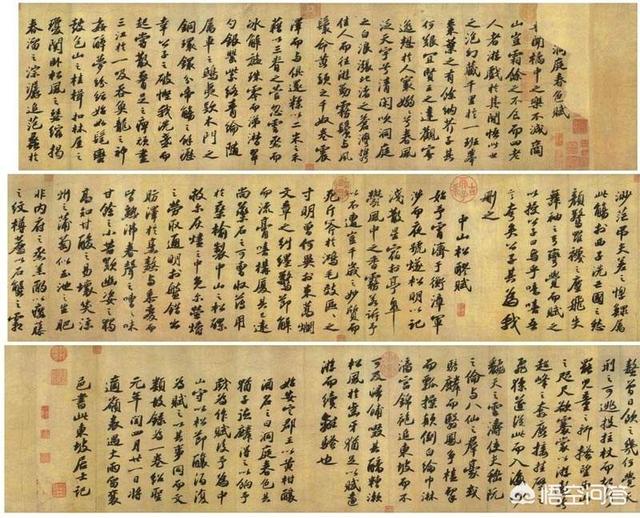 洞庭春色賦
吾聞橘中之樂不減商
山豈霜餘之不食而四老
人者游戲於其間悟此世
之泡幻藏千里於一班舉
棗葉之有餘納芥子其
何艱宜賢王之達觀寄
逸想於人寰嫋嫋兮春風
泛天宇兮清閑吹洞庭
之白浪漲北渚之蒼灣攜
佳人而往游勤霧鬢與風
鬟命黃頭之千奴卷震
澤而與俱還糅以二米之禾
藉以三脊之菅忽雲烝而
冰解旋珠零而涕潸翠
勺銀罌紫絡青綸隨
屬車之鴟夷款木門之
銅鐶分帝觴之餘瀝
幸公子之破慳我洗盞而
起嘗散腰足之痹頑盡
三江於一吸吞魚龍之神
姦醉夢紛紜始如髦蠻
鼓包山之桂楫扣林屋之
瓊關臥松風之瑟縮揭
春溜之淙潺追范蠡於
渺茫弔夫差之惸鰥屬
此觴於西子洗亡國之愁
顏驚羅襪之塵飛失
舞袖之弓彎覺而賦之
以授公子曰烏乎噫嘻吾
言夸矣公子其為我
刪之
中山松醪賦
始予宵濟於衡漳軍
涉而夜號燧松明以記
淺散星宿於亭皋
鬱風中之香霧若訴予
以不遭豈千歲之妙質而
死斤斧於鴻毛效區區之
寸明曾何異於束蒿爛
文章之糾纆驚節解
而流膏嘻構廈其已遠
尚藥石之可曹收薄用
於桑榆製中山之松醪
救爾灰燼之中免爾螢爝
之勞取通明於盤錯出
肪澤於烹熬與黍麥而
皆熟沸舂聲之嘈嘈味
甘餘而小苦歎幽姿之獨
高知甘酸之易壞笑涼
州之蒲萄似玉池之生肥
非內府之烝羔酌以癭藤
之紋樽薦以石蟹之霜
螯曾日飲之幾何覺天
刑之可逃投拄杖而起行
罷兒童之抑搔望西山
之咫尺欲褰裳以游遨跨
超峰之奔鹿接挂壁之
飛猱遂從此而入海渺
翻天之雲濤使夫嵇阮
之倫與八仙之群豪或
騎麟而翳鳳爭榼挈
而瓢操顛倒白綸巾淋
漓宮錦袍追東坡而不
可及歸餔歠其醨糟漱
松風於齒牙猶足以賦遠
游而續離騷也
始安定郡王以黃柑釀
酒名之曰洞庭春色其
猶子德麟得之以餉予
戲為作賦後予為中
山守以松節釀酒復
為賦之以其事同而文
類故錄為一卷紹聖
元年閏四月廿一日將
適嶺表遇大雨留襄
邑書此東坡居士記
悟空问答